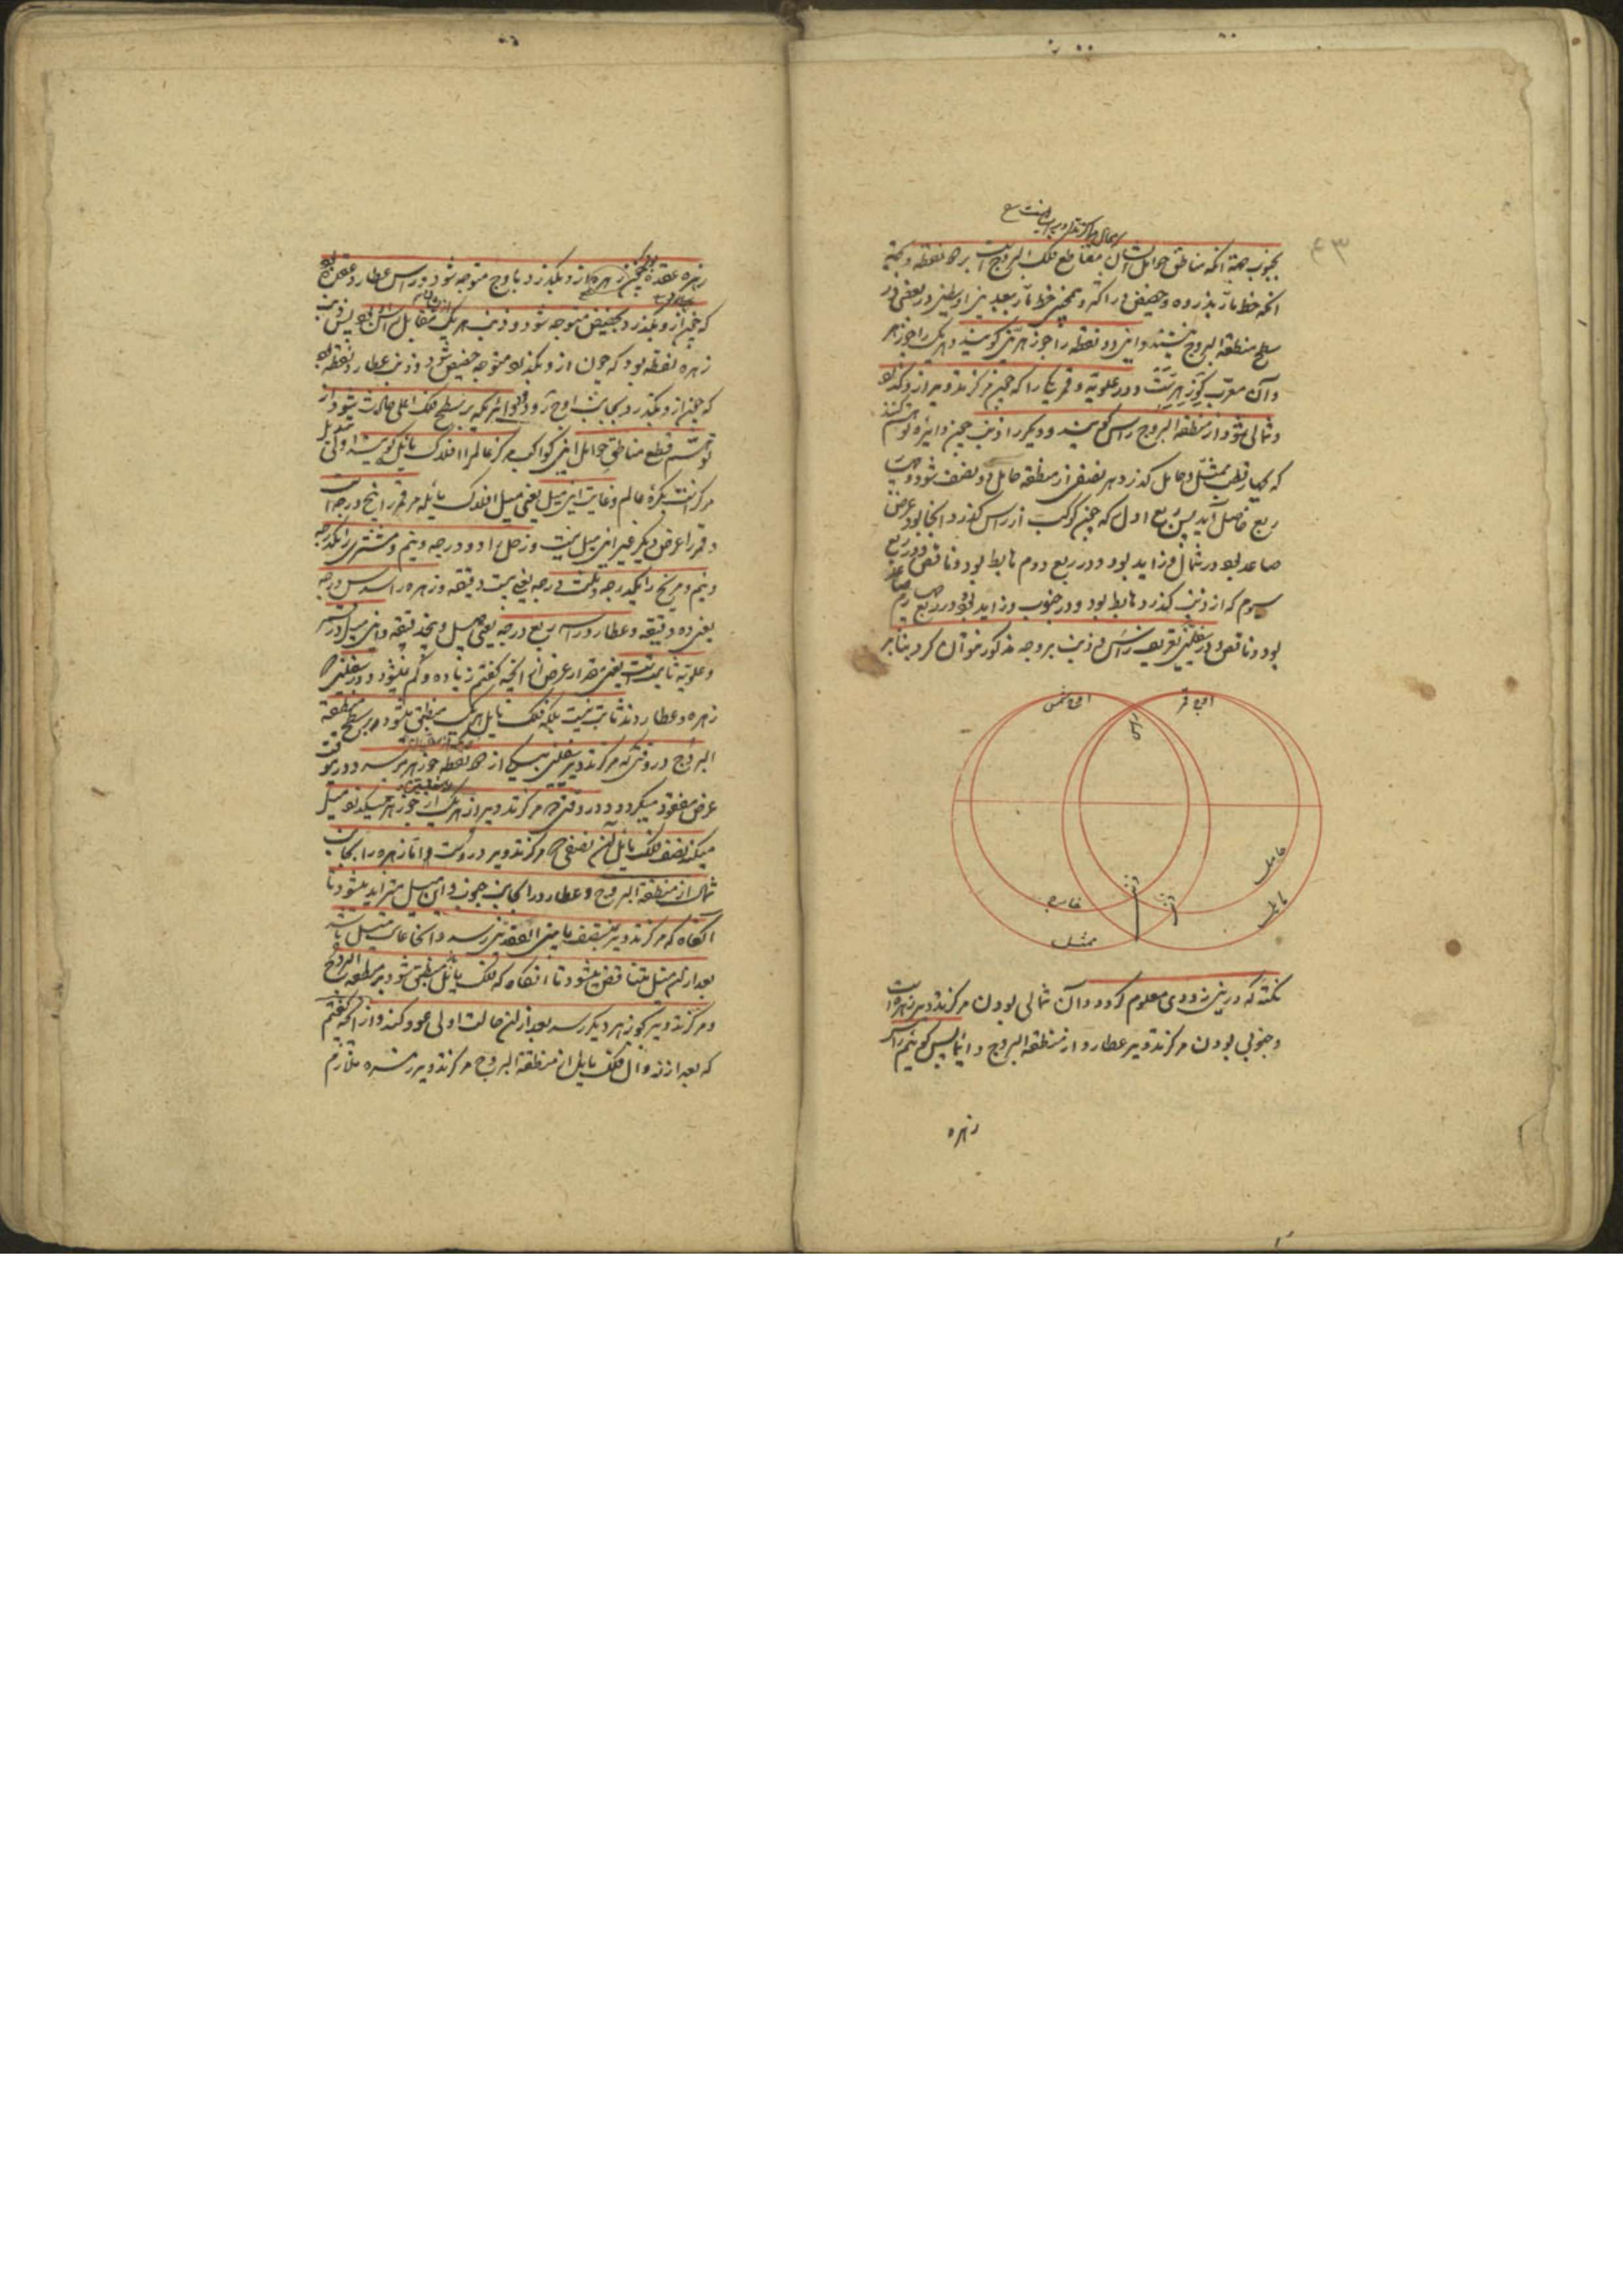 ۴۳
بجنوب جهة آنکه مناطق حوامل ایشان مقاطع فلک البروج است بر دو نقطه و بجهة
آنکه خط مار بذروه و حضیض در اکثر و همچنین خط مار ببعدین اوسطین در بعضی در
سطح منطقة البروج نیستند و این دو نقطه را جوزهرین گویند و هر یک را جوزهر
و آن معرب گوزهر است و در علویه و قمر یکی را که چون مرکز تدویر ازو گذرد
شمالی شود از منطقة البروج راس گویند و دیگر را ذنب چون دایره توهم کنند
که بچهار قطب ممثل و حامل گذرد هر نصفی از منطقه حامل دو نصف شود و چهار
ربع حاصل آید پس ربع اول که چون کوکب از راس گذرد آنجا بود عرض
صاعد بود در شمال و زاید بود و در ربع دوم هابط بود و ناقص و در ربع
سوم که از ذنب گذرد هابط بود و در جنوب و زاید بود و در ربع چهارم صاعد
بود و ناقص و در سفلیین تعریف راس و ذنب بر وجه مذکور نتوان کرد بنا بر
اوج شمس
اوج قمر
راس
حامل
مایل
خارج
ممثل
نکته که درین زودی معلوم گردد و آن شمالی بودن مرکز تدویر زهره است
و جنوبی بودن مرکز تدویر عطارد از منطقة البروج دائما پس گوئیم راس
زهره
زهره عقدۀ بود که چون زهره ازو بگذرد باوج متوجه شود و راس عطارد عقدۀ بود
که چون ازو بگذرد بحضیض متوجه شود و ذنب هر یک مقابل راس بود پس ذنب
زهره نقطه بود که چون ازو بگذرد متوجه حضیض شود و ذنب عطارد نقطه بود
که چون ازو بگذرد بجانب اوج رود و دوایر که بر سطح فلک اعلی حادث شود از
توهم قطع مناطق حوامل این کواکب مر کره عالم را افلاک مایل گویند
مرکز است بکرۀ عالم و غایت این میل یعنی میل افلاک مایله مر قمر را پنج درجه است
و قمر را عرض دیگر غیر این میل نیست و زحل را دو درجه و نیم و مشتری را یکدرجه
و نیم و مریخ را یکدرجه و یعنی بیست دقیقه و زهره را سدس درجه
یعنی ده دقیقه و عطارد را سه ربع درجه یعنی چهل و پنجدقیقه و این میل در قمر
و علویه ثابت است یعنی مقدار عرض از آنچه گفتم زیاده و کم نمیشود و در سفلیین
زهره و عطاردند ثابت نیست بلکه فلک مایل هر یک منطبق میشود بر سطح منطقة
البروج در وقتی که مرکز تدویر سفلیین بیکی از دو نقطه جوزهر میرسد و در آن وقت
عرض مفقود میگردد و در وقتی که مرکز تدویر از هر یک از جوزهر میگذرد میل
میکند نصف فلک مایل آن نصفی که مرکز تدویر دروست اما زهره را بجانب
شمال از منطقة البروج و عطارد را بجانب جنوب و این میل متزاید میشود تا
آنگاه که مرکز تدویر بمنتصف ما بین العقدتین رسد و آنجا غایت میل باشد
بعد از آن میل متناقص میشود تا آنگاه که فلک مایل منطبق شود بر منطقة البروج
و مرکز تدویر بجوزهر دیگر رسد بعد از آن حالت اولی عود کند و از آنچه گفتم
که بعد از زوال فلک مایل از منطقة البروج مرکز تدویر زهره ملازم